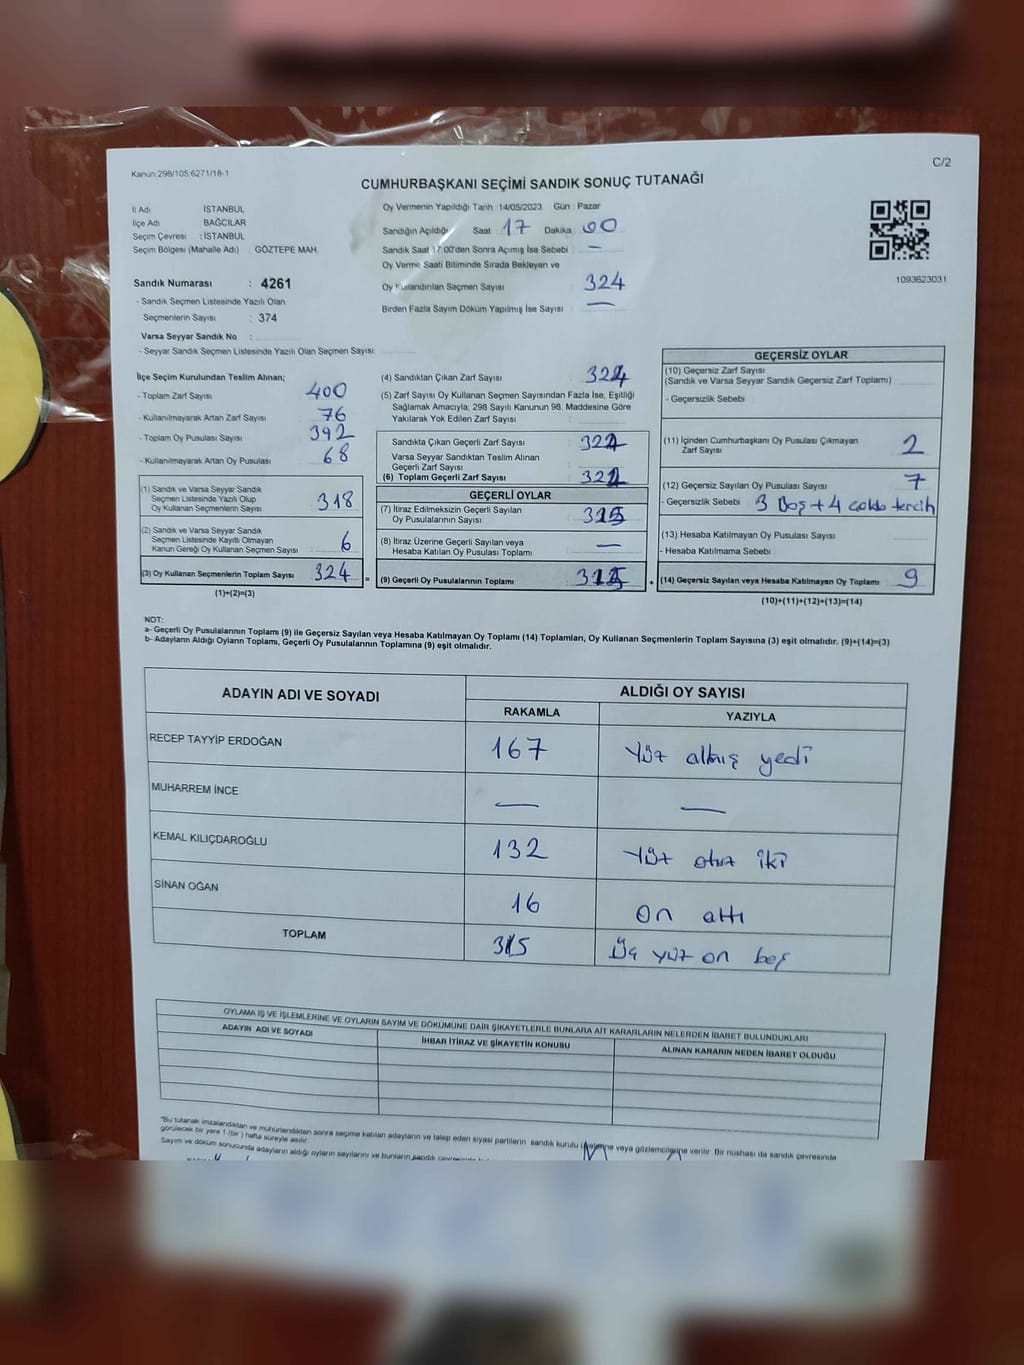 C/2
Kanun.298/105;6271/18-1
CUMHURBAŞKANI SEÇİMİ SANDIK SONUÇ TUTANAĞI
İl Adı İSTANBUL
İlçe Adı BAĞCILAR
Seçim Çevresi : İSTANBUL
Seçim Bölgesi (Mahalle Adı) : GÖZTEPE MAH.
Sandık Numarası : 4261
- Sandık Seçmen Listesinde Yazılı Olan
Seçmenlerin Sayısı : 374
Varsa Seyyar Sandık No :
- Seyyar Sandık Seçmen Listesinde Yazılı Olan Seçmen Sayısı
Oy Vermenin Yapıldığı Tarih 14/05/2023 Gün : Pazar
Sandığın Açıldığı Saat 17 Dakika 00
Sandık Saat 17:00'den Sonra Açımış İse Sebebi : —
Oy Verme Saati Bitiminde Sırada Bekleyen ve
Oy Kullandırılan Seçmen Sayısı 324
Birden Fazla Sayım Döküm Yapılmış İse Sayısı : —
1093623031
İlçe Seçim Kurulundan Teslim Alınan;
- Toplam Zarf Sayısı 400
- Kullanılmayarak Artan Zarf Sayısı 76
- Toplam Oy Pusulası Sayısı 392
- Kullanılmayarak Artan Oy Pusulası 68
(1) Sandık ve Varsa Seyyar Sandık
Seçmen Listesinde Yazılı Olup
Oy Kullanan Seçmenlerin Sayısı 318
(2) Sandık ve Varsa Seyyar Sandık
Seçmen Listesinde Kayıtlı Olmayan
Kanun Gereği Oy Kullanan Seçmen Sayısı 6
(3) Oy Kullanan Seçmenlerin Toplam Sayısı 324 =
(1)+(2)=(3)
(4) Sandıktan Çıkan Zarf Sayısı 324
(5) Zarf Sayısı Oy Kullanan Seçmen Sayısından Fazla İse, Eşitliği
Sağlamak Amacıyla; 298 Sayılı Kanunun 98. Maddesine Göre
Yakılarak Yok Edilen Zarf Sayısı
Sandıkta Çıkan Geçerli Zarf Sayısı 324
Varsa Seyyar Sandıktan Teslim Alınan
Geçerli Zarf Sayısı
(6) Toplam Geçerli Zarf Sayısı 324
GEÇERLİ OYLAR
(7) İtiraz Edilmeksizin Geçerli Sayılan
Oy Pusulalarının Sayısı 315
(8) İtiraz Üzerine Geçerli Sayılan veya
Hesaba Katılan Oy Pusulası Toplamı —
(9) Geçerli Oy Pusulalarının Toplamı 315 +
GEÇERSİZ OYLAR
(10) Geçersiz Zarf Sayısı
(Sandık ve Varsa Seyyar Sandık Geçersiz Zarf Toplamı)
- Geçersizlik Sebebi
(11) İçinden Cumhurbaşkanı Oy Pusulası Çıkmayan
Zarf Sayısı 2
(12) Geçersiz Sayılan Oy Pusulası Sayısı 7
- Geçersizlik Sebebi 3 Boş + 4 çoklu tercih
(13) Hesaba Katılmayan Oy Pusulası Sayısı
- Hesaba Katılmama Sebebi
(14) Geçersiz Sayılan veya Hesaba Katılmayan Oy Toplamı 9
(10)+(11)+(12)+(13)=(14)
NOT:
a- Geçerli Oy Pusulalarının Toplamı (9) ile Geçersiz Sayılan veya Hesaba Katılmayan Oy Toplamı (14) Toplamları, Oy Kullanan Seçmenlerin Toplam Sayısına (3) eşit olmalıdır. (9)+(14)=(3)
b- Adayların Aldığı Oyların Toplamı, Geçerli Oy Pusulalarının Toplamına (9) eşit olmalıdır.
ADAYIN ADI VE SOYADI ALDIĞI OY SAYISI
RAKAMLA YAZIYLA
RECEP TAYYİP ERDOĞAN 167 Yüz altmış yedi
MUHARREM İNCE — —
KEMAL KILIÇDAROĞLU 132 Yüz otuz iki
SİNAN OĞAN 16 On altı
TOPLAM 315 Üç yüz on beş
OYLAMA İŞ VE İŞLEMLERİNE VE OYLARIN SAYIM VE DÖKÜMÜNE DAİR ŞİKAYETLERLE BUNLARA AİT KARARLARIN NELERDEN İBARET BULUNDUKLARI
ADAYIN ADI VE SOYADI İHBAR İTİRAZ VE ŞİKAYETİN KONUSU ALINAN KARARIN NEDEN İBARET OLDUĞU
"Bu tutanak imzalandıktan ve mühürlendikten sonra seçime katılan adayların ve talep eden siyasi partilerin sandık kurulu üyelerine veya gözlemcilerine verilir. Bir nüshası da sandık çevresinde
görülecek bir yere 1 (bir) hafta süreyle asılır.
Sayım ve döküm sonucunda adayların aldığı oyların sayılarını ve bunların sandık